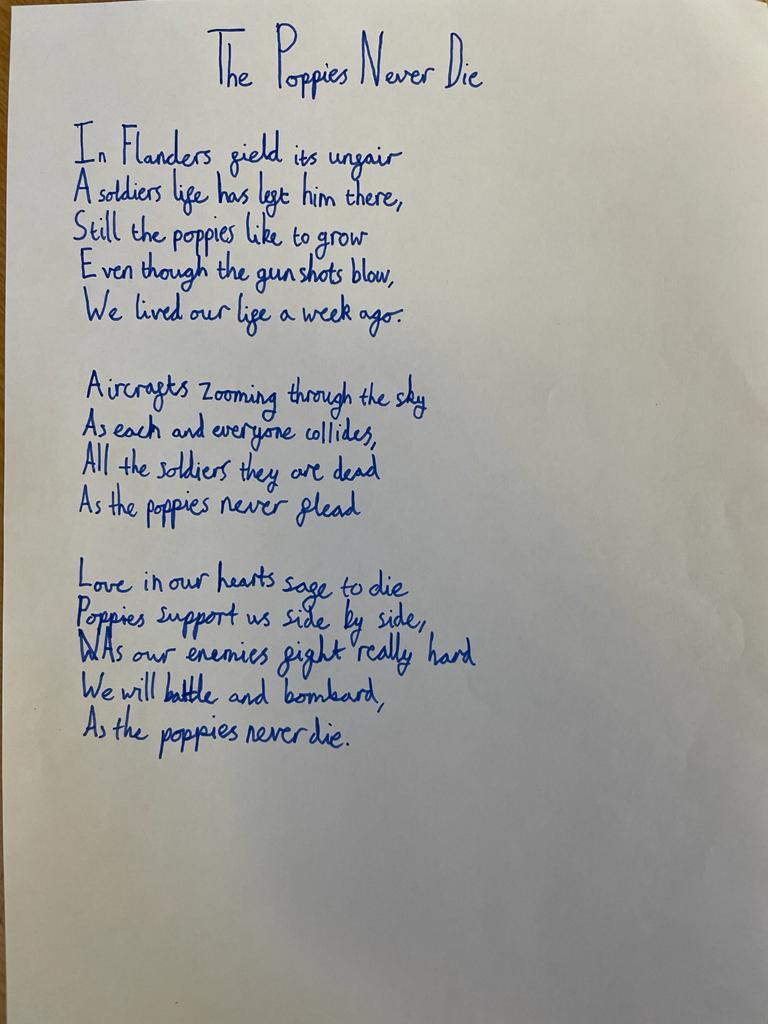 The Poppies Never Die
In Flanders field its unfair
A soldiers life has left him there,
Still the poppies like to grow
Even though the gunshots blow,
We lived our life a week ago.
Aircrafts zooming through the sky
As each and everyone collides,
All the soldiers they are dead
As the poppies never flead
Love in our hearts safe to die
Poppies support us side by side,
As our enemies fight really hard
We will battle and bombard,
As the poppies never die.